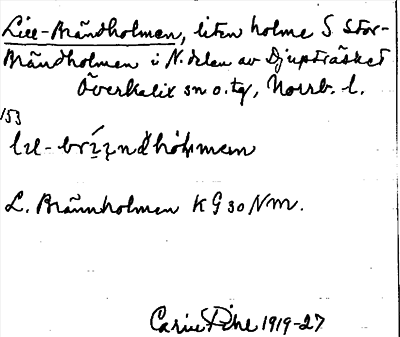 Lill-Brändholmen, liten holme S Stor-
Brändholmen i N. delen av Djupträsket
Överkalix sn o. tg, Norrb. l.
153
L. Brännholmen KG 30 NM.
Carin Pihl 1919-27